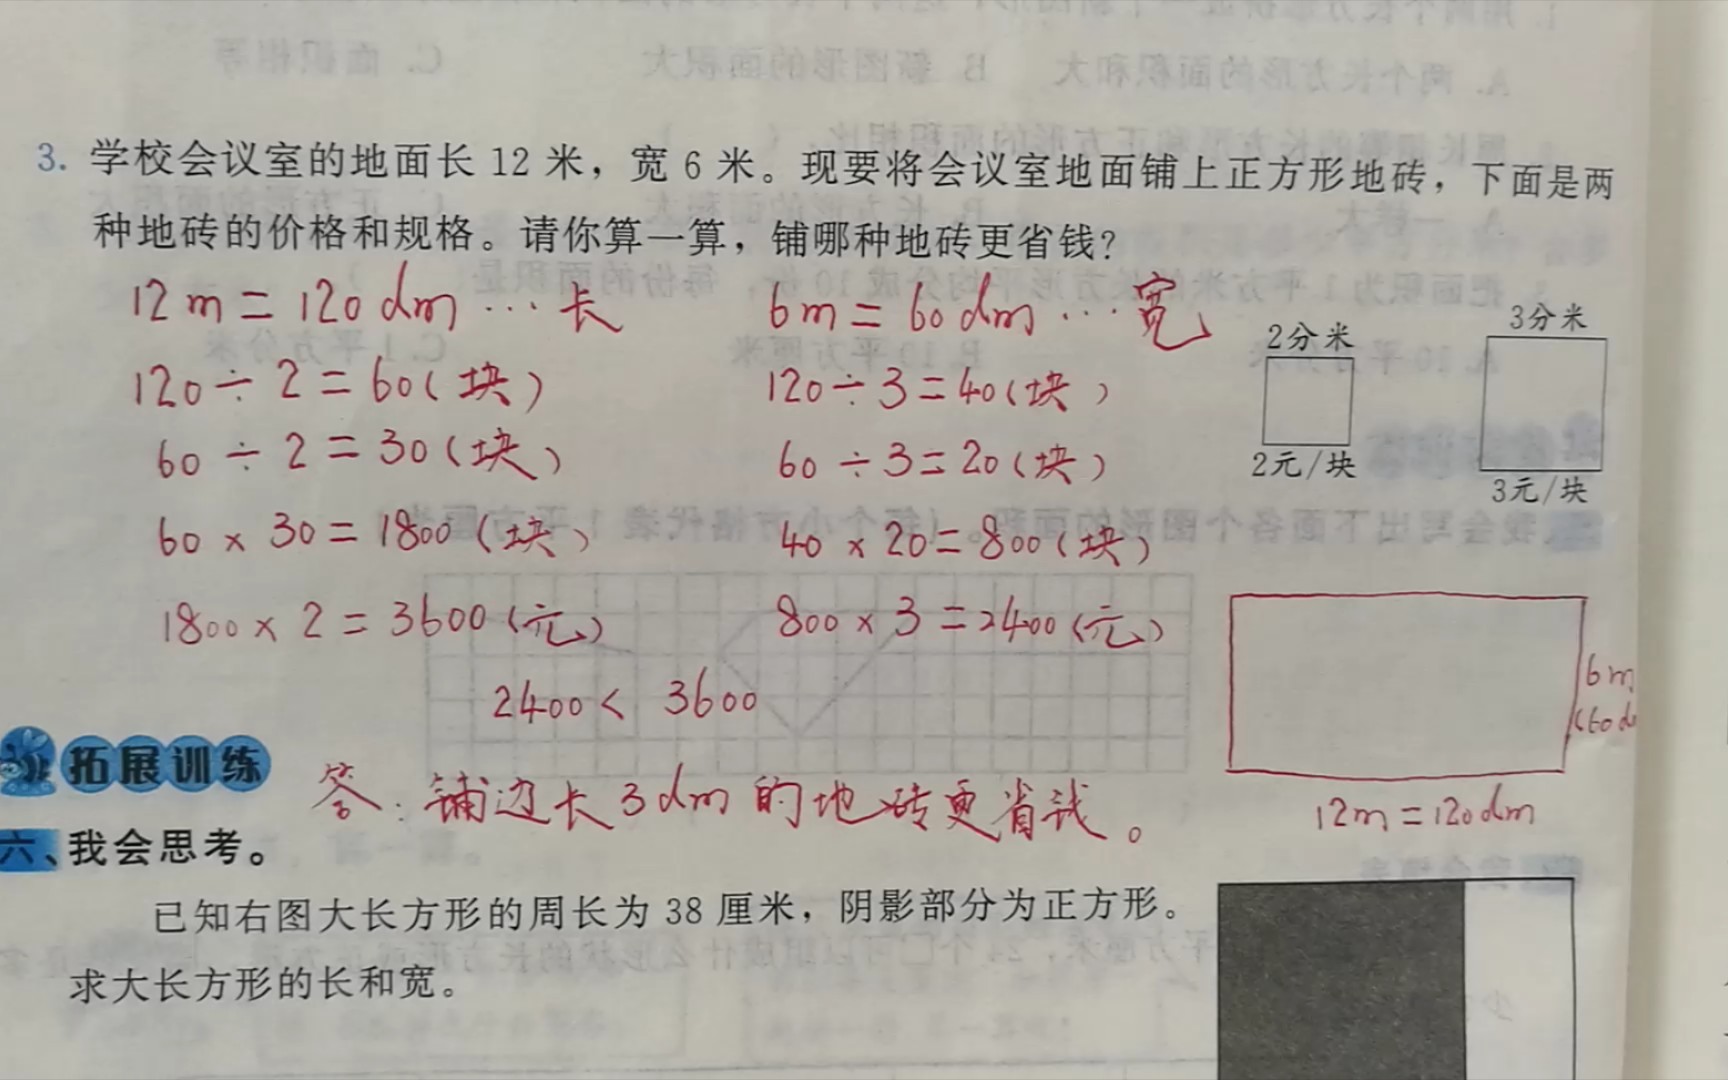 3. 学校会议室的地面长 12 米，宽 6 米。现要将会议室地面铺上正方形地砖，下面是两
种地砖的价格和规格。请你算一算，铺哪种地砖更省钱？
12m=120dm…长
6m=60dm…宽
120÷2=60(块)
120÷3=40(块)
60÷2=30(块)
60÷3=20(块)
60×30=1800(块)
40×20=800(块)
1800×2=3600(元)
800×3=2400(元)
2400< 3600
答：铺边长3dm的地砖更省钱。
2分米
2元/块
3分米
3元/块
6m
(60d
12m=120dm
拓展训练
六、我会思考。
已知右图大长方形的周长为 38 厘米，阴影部分为正方形。
求大长方形的长和宽。